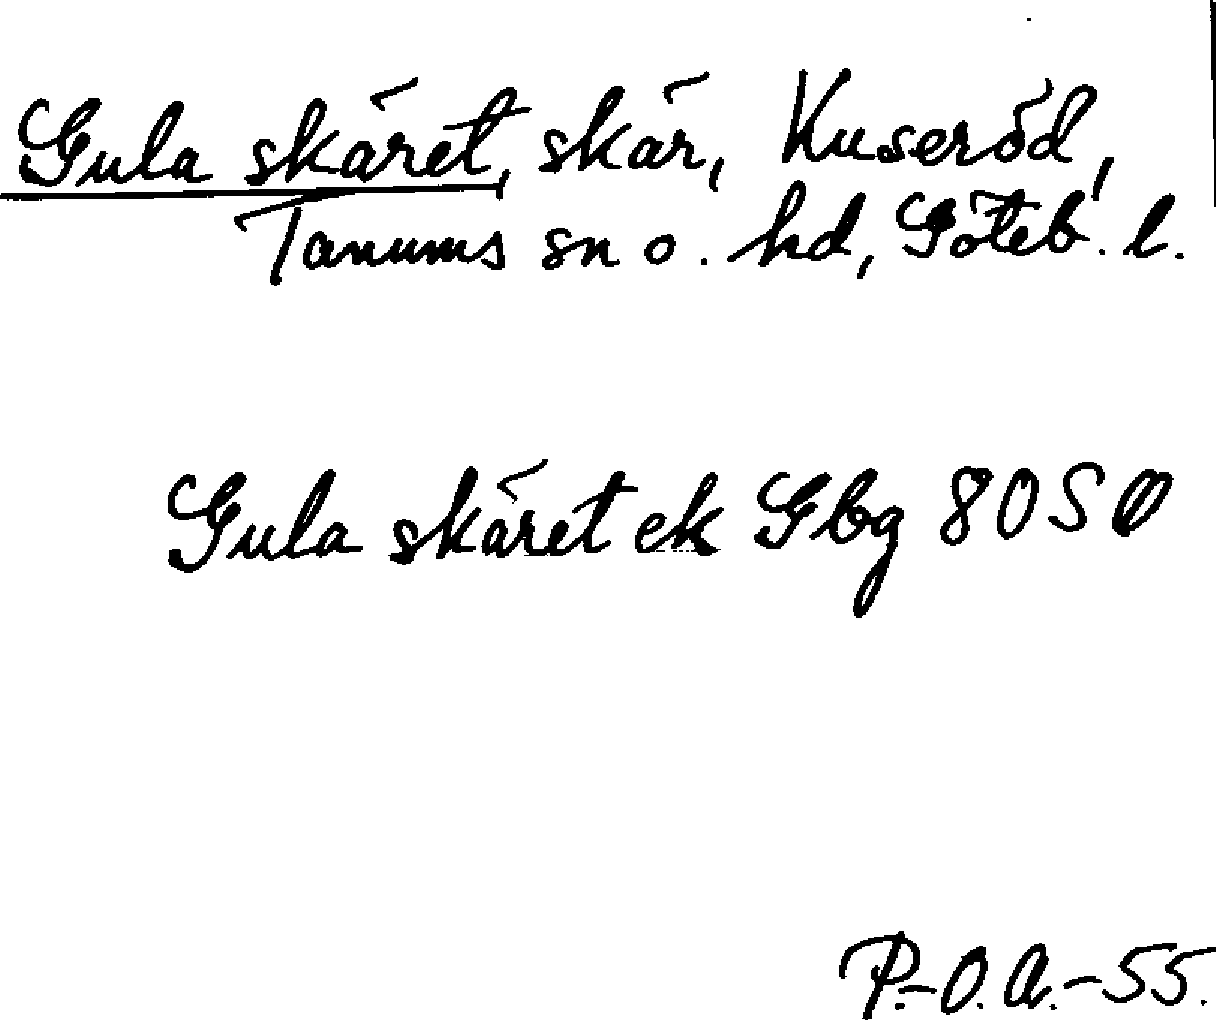 Gula skäret, skär, Kuseröd,
Tanums sn o. hd, Göteb. l.
Gula skäret ek Gbg 80 SO
P.-O. A.-55.